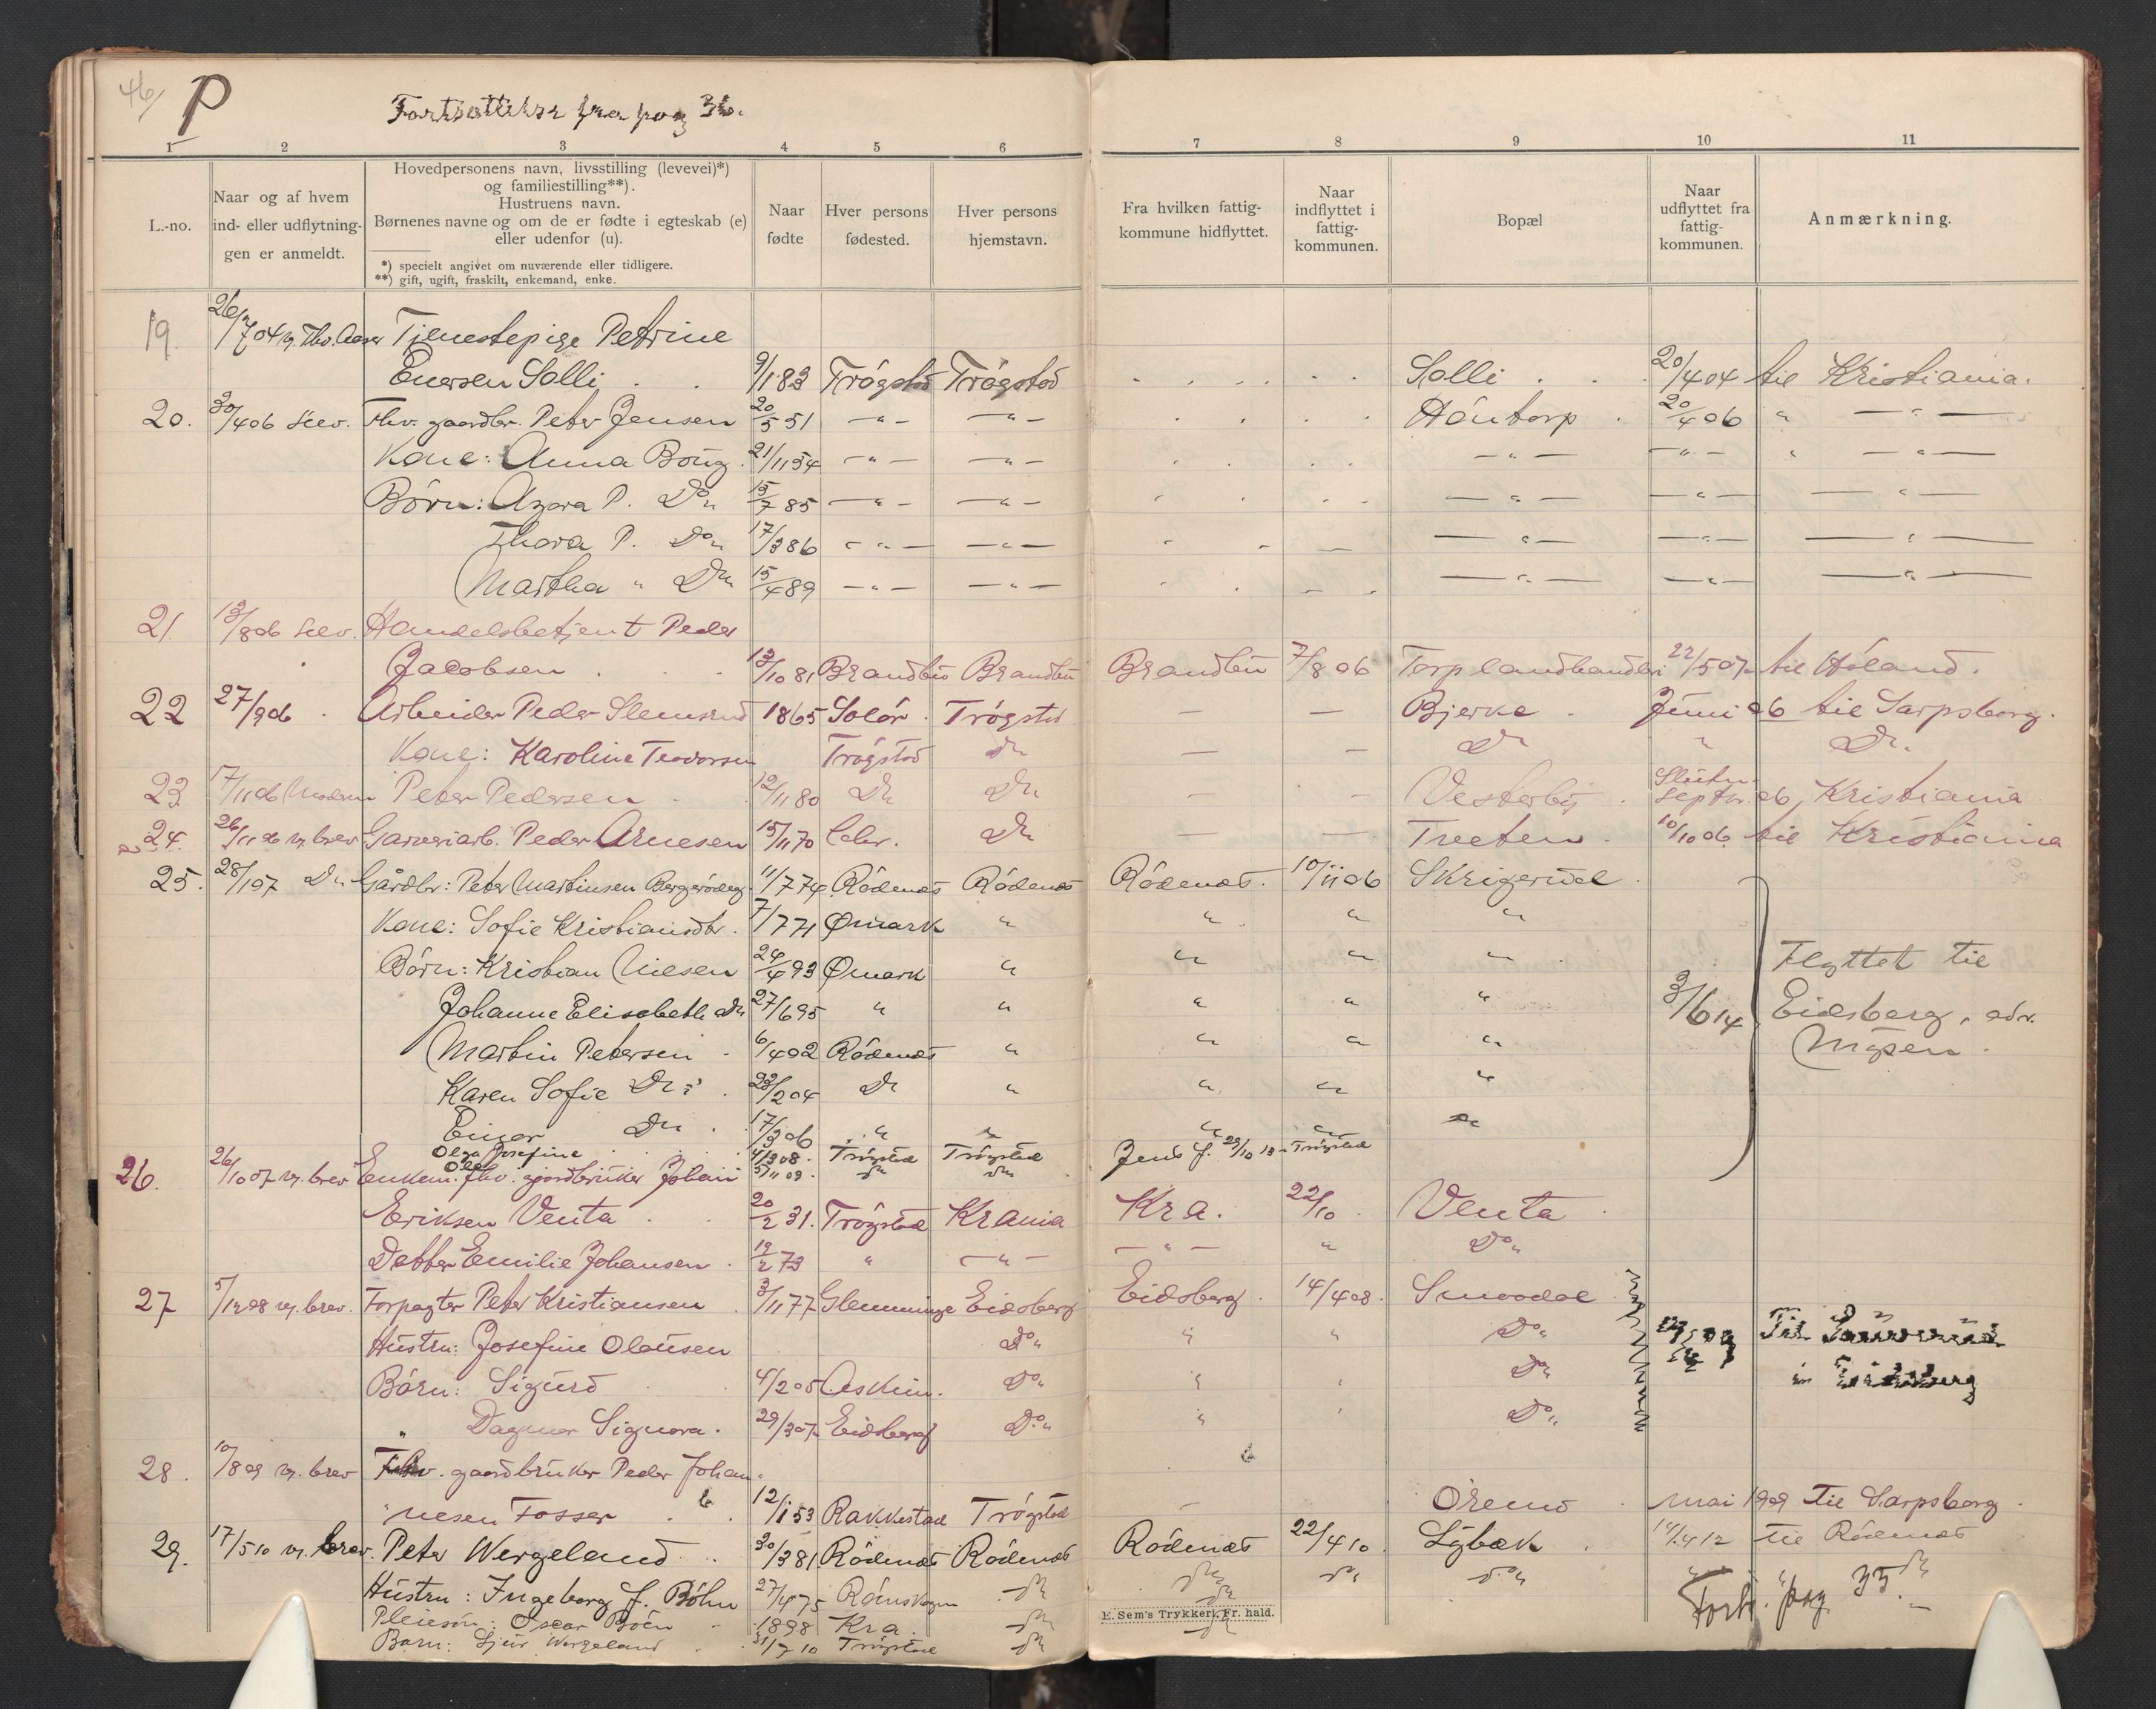 46/ P Fortsættelse fra pag 36.
1 2 3 4 5 6 7 8 9 10 11
L.-no.
Naar og af hvem
ind- eller udflytning-
gen er anmeldt.
Hovedpersonens navn, livsstilling (levevei)*)
og familiestilling**).
Hustruens navn.
Børnenes navne og om de er fødte i egteskab (e)
eller udenfor (u).
*) specielt angivet om nuværende eller tidligere.
**) gift, ugift, fraskilt, enkemand, enke.
Naar
fødte
Hver persons
fødested.
Hver persons
hjemstavn.
Fra hvilken fattig-
kommune hidflyttet.
Naar
indflyttet i
fattig-
kommunen.
Bopæl
Naar
udflyttet fra
fattig-
kommunen.
Anmærkning.
19. 26/7 04 v. Tho. Aaser Tjenestepige Petrine
Enersen Solli 9/1 83 Trøgstad Trøgstad Solli 20/4 04 til Kristiania.
20. 30/4 06 Selv. Fhv. gaardbr. Peter Jensen 20/5 51 — " — — " — Høntorp 20/4 06 " — " —
Kone: Anna Boug 21/11 54 — " — — " — — " — — " — " — " —
Børn: Azora P. Do 15/7 85 — " — — " — — " — — " — — " —
Thora P. Do 17/3 86 — " — — " — — " — — " — — " —
Martha " Do 15/4 89 — " — — " — — " — — " — — " —
21. 13/8 06 Selv. Handelsbetjent Peder
Jacobsen 13/10 81 Brandbu Brandbu Brandbu 7/8 06 Torp landhandleri 22/5 07 til Høland.
22 27/9 06 Arbeider Peder Slemsrud 1865 Solør Trøgstd — — Bjerke Juni 06 til Sarpsborg.
Kone: Karoline Teodorsen Trøgstad Do — — Do " Do.
23 17/11 06 Moderen Peter Pedersen 12/11 80 Do Do — — Vesterby Slutn. Septbr. 06, Kristiania
24. 26/11 06 v. brev Garveriarb. Peder Arnesen 15/11 70 Do — — Treeten 10/10 06 til Kristiania
25. 28/1 07 Do Gårdbr: Peter Martinsen 11/7 74 Rødenæs Rødenæs Rødenæs. 10/11 06 Skrigerud
Kone: Sofie Kristiansdtr. 7/7 71 Ømark " " " "
Børn: Kristian Nilsen 24/4 93 Ømark " " " " Flyttet til
Johanne Elisabeth Do 27/6 95 " " " " " 3/6 14 Eidsberg, adr.
Martin Petersen 6/4 02 Rødenæs " " " " Mysen.
Karen Sofie Do 23/2 04 Do " " " "
Einar Do 17/3 06 " " " " "
Olga Josefine 4/3 08. Trøgstad Trøgstad
Olaf 5/11 09. Do Do Jens f. 29/10 13 - Trøgstad
26. 26/10 07 v. brev Enkem. fhv. gaardbruker Johan
Eriksen Venta 20/2 31. Trøgstad Krania Kra. 22/10 Venta
Datter Emilie Johansen 19/2 73 " — " — — " — " Do
27 5/12 08 v. brev. Forpagter Peter Kristiansen 3/11 77 Glemminge Eidsberg Eidsberg 14/4 08. Smaadal
Hustru: Josefine Olausen Do " " Do Til
Børn: Sigurd 4/2 05 Askim. Do " " Do i Eidsberg
" Dagmar Signora. 29/3 07 Eidsberg Do " " Do
28. 10/8 09 v. brev Fhv. gaardbruker Peder Johan-
nesen Fosser 12/1 53 Rakkestad Trøgstad — Øremo mai 1909 Til Sarpsborg.
29. 17/5 10 v. brev. Peter Wergeland 30/3 81 Rødenæs Rødenæs Rødenæs 22/4 10 Lybæk 14/4 12 til Rødenæs
Hustru: Ingeborg f. Böhn 27/4 75 Rømskogen Do Do Do Do " " Do
Pleiesøn: Oscar Boën 1898 Kra. Do Do Fort. pag 35.
Barn: Sjur Wergeland 31/7 10 Trøgstad Do Do
E. Sem's Trykkeri, Fr. hald.